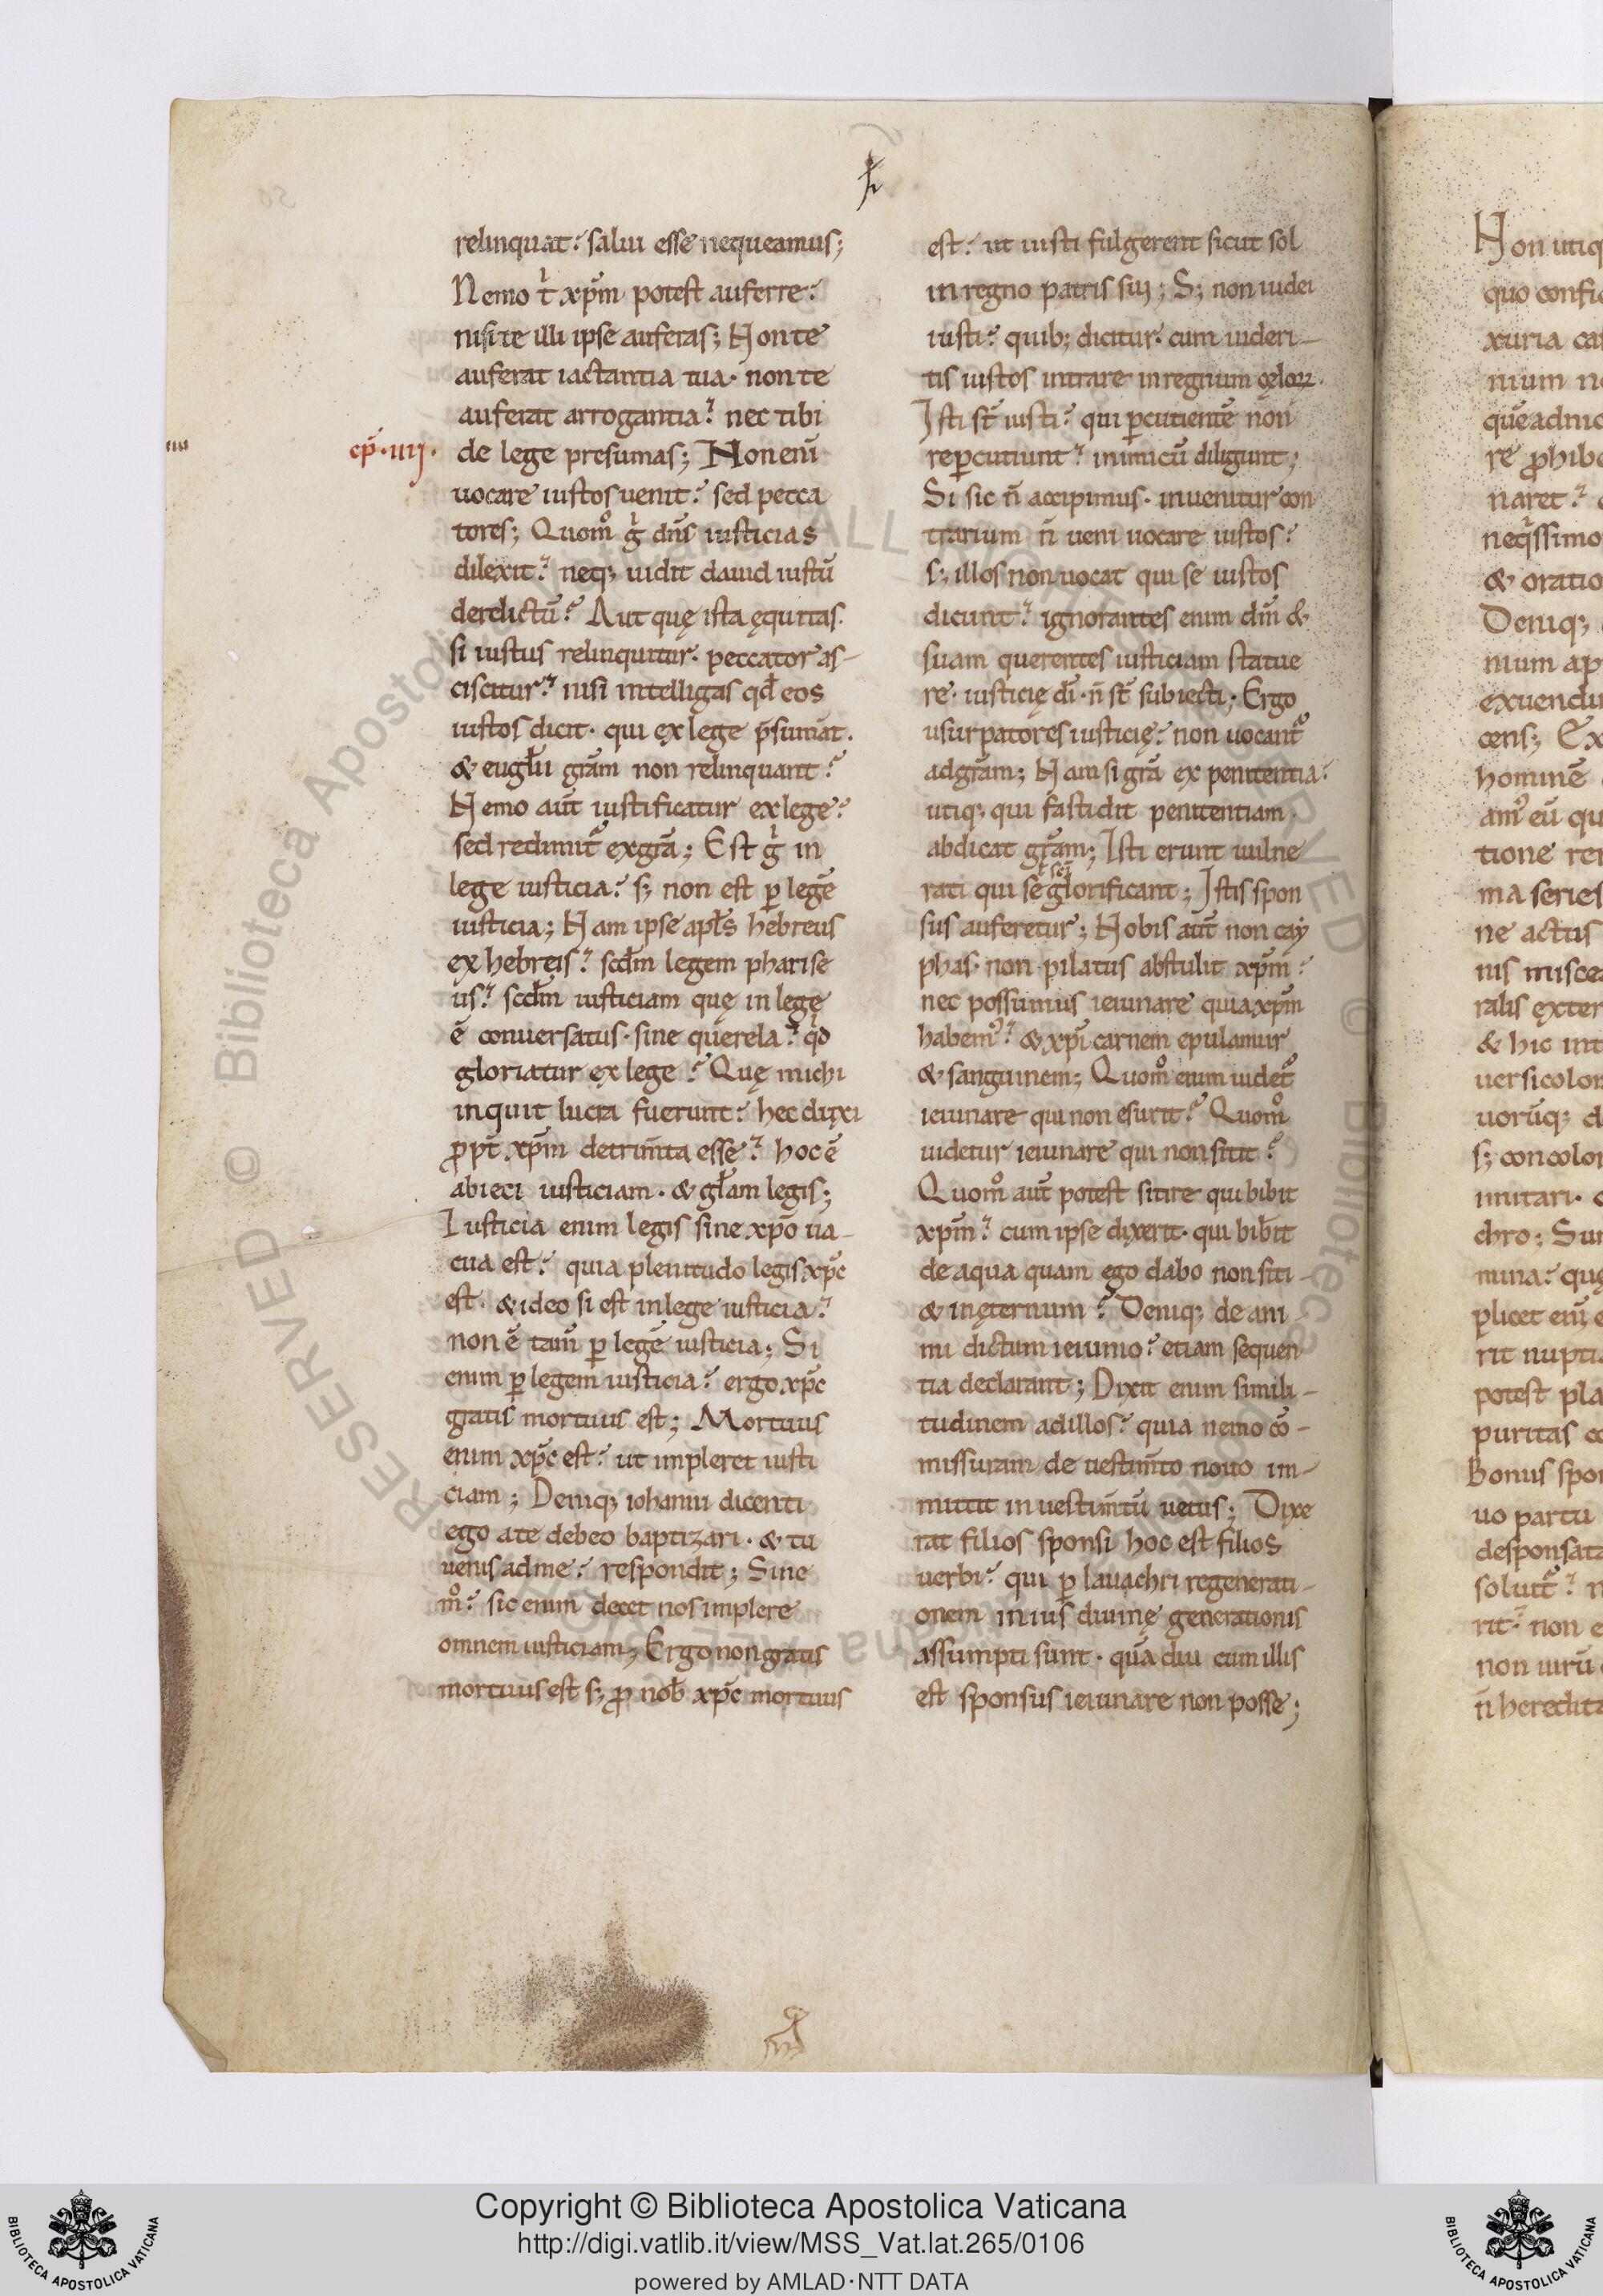 relinquat: salui esse nequeamus;
Nemo t̉ xp̄m potest auferre:
nisi te illi ipse auferas; Non te
auferat iactantia tua· non te
auferat arrogantia? nec tibi
cp̄·iiij· de lege presumas; Non eni̅
uocare iustos uenit: sed pecca
tores; Quom̊ g̉ dn̄s iusticias
dilexit? neq; uidit dauid iustū
derelictū? Aut quę ista ęquitas·
si iustus relinquitur· peccator as-
ciscitur? nisi intelligas qđ eos
iustos dicit· qui ex lege p̄sumāt·
& eugłii grām non relinquant?
Nemo aūt iustificatur ex lege:
sed redimit᷑ ex grā; Est g̉ in
lege iusticia: s; non est ꝑ legē
iusticia; Nam ipse apłs hebreus
ex hebreis? scđm legem pharise
us? scđm iusticiam quę in lege
ē conuersatus· sine querela? qđ
gloriatur ex lege? Quę michi
inquit lucra fuerunt: hec duxi
ꝓpt̄ xp̄m detrim̄ta esse? hoc ē
abieci iusticiam· & głam legis;
Iusticia enim legis sine xp̄o ua-
cua est: quia plenitudo legis xp̄c
est· & ideo si est in lege iusticia?
non ē tam̄ ꝑ legē iusticia; Si
enim ꝑ legem iusticia: ergo xp̄c
gratis mortuus est; Mortuus
enim xp̄c est: ut impleret iusti
ciam; Deniq; iohanni dicenti
ego a te debeo baptizari· & tu
uenis ad me: respondit; Sine
m̊: sic enim decet nos implere
omnem iusticiam; Ergo non gratis
mortuus est s; ꝓ nob̄ xp̄c mortuus
est: ut iusti fulgerent sicut sol
in regno patris sui; S; non iudei
iusti: quib; dicitur· cum uideri-
tis iustos intrare in regnum cęloꝝ·
Isti st̄ iusti: qui ꝑcutientē non
reꝑcutiunt? inimicū diligunt;
Si sic n̄ accipimus· inuenitur con
trarium n̄ ueni uocare iustos:
s; illos non uocat qui se iustos
dicunt? ignorantes enim dn̄i &
suam querentes iusticiam statue
re· iusticię dī· n̄ st̄ subiecti· Ergo
usurpatores iusticię: non uocant᷑
ad grām; Nam si grā ex penitentia:
utiq; qui fastidit penitentiam·
abdicat grām; Isti erunt uulne
rati qui se glorificant; Istis spon
sus auferetur; Nobis aūt non cay
phas· non pilatus abstulit xp̄m:
nec possumus ieiunare quia xp̄m
habem᷒? & xp̄i carnem epulamur
& sanguinem; Quom̊ enim uidet᷑
ieiunare qui non esurit? Quom̊
uidetur ieiunare qui non sitit?
Quom̊ aūt potest sitire qui bibit
xp̄m? cum ipse dixerit· qui bibit
de aqua quam ego dabo non siti-
& in ęternum? Deniq; de ani-
mi dictum ieiunio: etiam sequen
tia declarant; Dixit enim simili-
tudinem ad illos: quia nemo cō-
missuram de uestim̄to nouo im-
mittit in uestim̄tū uetus; Dixe
rat filios sponsi hoc est filios
uerbi: qui ꝑ lauachri regenerati-
onem in ius diuinę generationis
assumpti sunt· quādiu cum illis
est sponsus ieiunare non posse;
Non utiq
quo confi
xuria ca
nium n
quēadmo
re ꝓhib
naret?
neq̇ssimo
& oratio
Deniq;
nium ap
exuendu
cens; Ex
hominē
am᷒ eū qu
tione re
ma series
ne actus
ius misce
ralis exter
& hic int
uersicolor
uorūq; d
s; concolor
imitari·
chro; Su
mina: quę
plicet eni̅
rit nupti
potest pla
puritas co
Bonus spo
uo partu
desponsata
soluit᷑?
rit? non e
non uirū
n̄ heredita
Copyright © Biblioteca Apostolica Vaticana
http://digi.vatlib.it/view/MSS_Vat.lat.265/0106
powered by AMLAD·NTT DATA
BIBLIOTECA APOSTOLICA VATICANA
BIBLIOTECA APOSTOLICA VATICANA